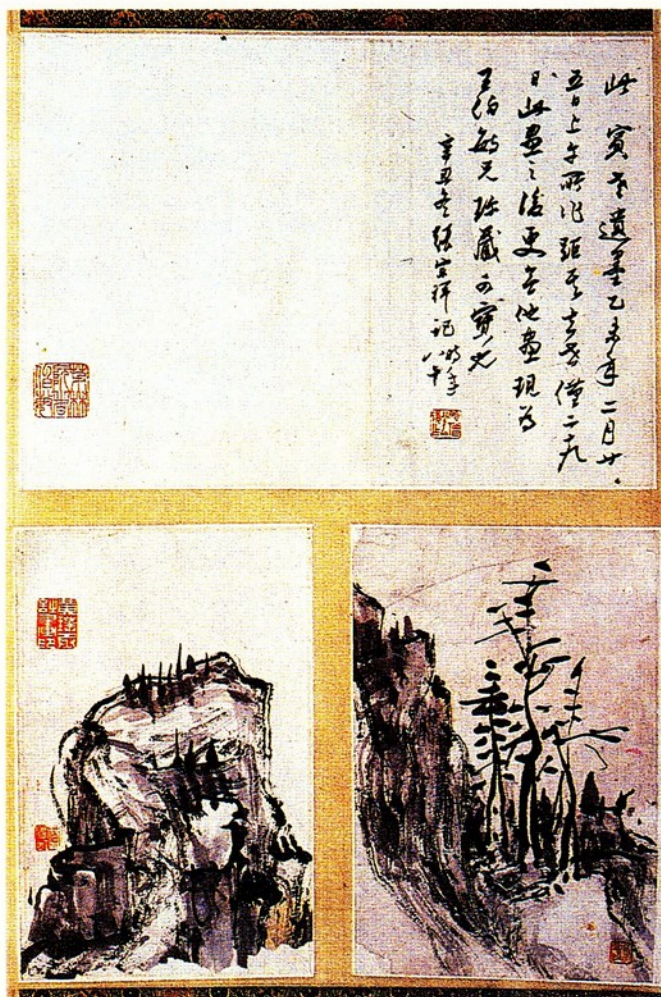 此賓老遺墨乙未年二月廿
五日上午所作距其去世僅二十九
日此畫之後更無他畫現為
王伯敏兄珎藏可寶也
辛丑冬張宗祥記時年
八十